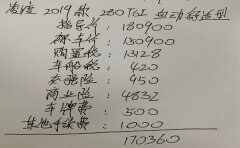 凌渡 2019款 280TSI 自动舒适型
指导价: 180900
裸车价: 150900
购置税: 13128
车船税: 420
交强险: 950
商业险: 4832
上牌费: 500
其他手续费: 1000
170360